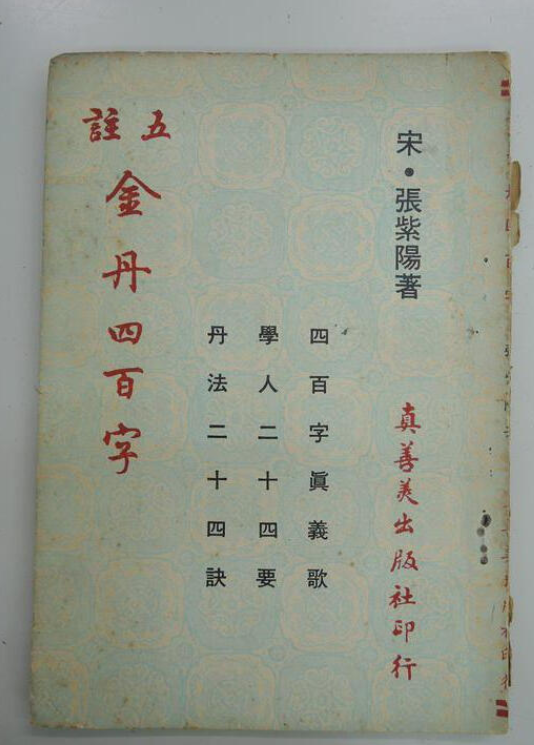 宋•張紫陽著
真善美出版社印行
四百字眞義歌
學人二十四要
丹法二十四訣
五註
金丹四百字